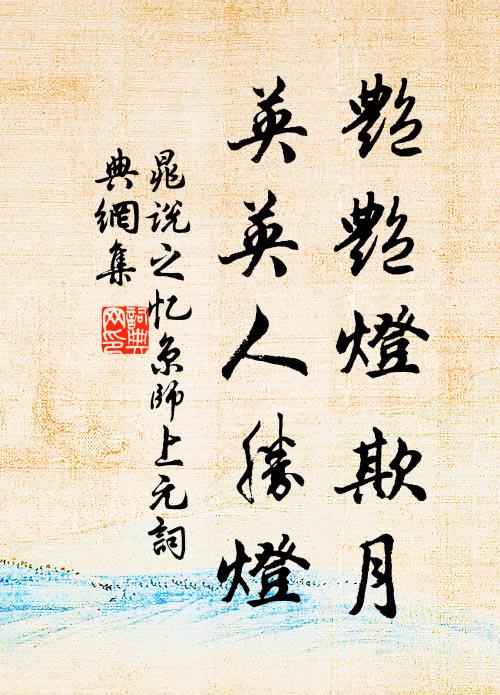 艷艷燈欺月
英英人勝燈
晁説之忆京師上元詞
典網集
詞典
网印